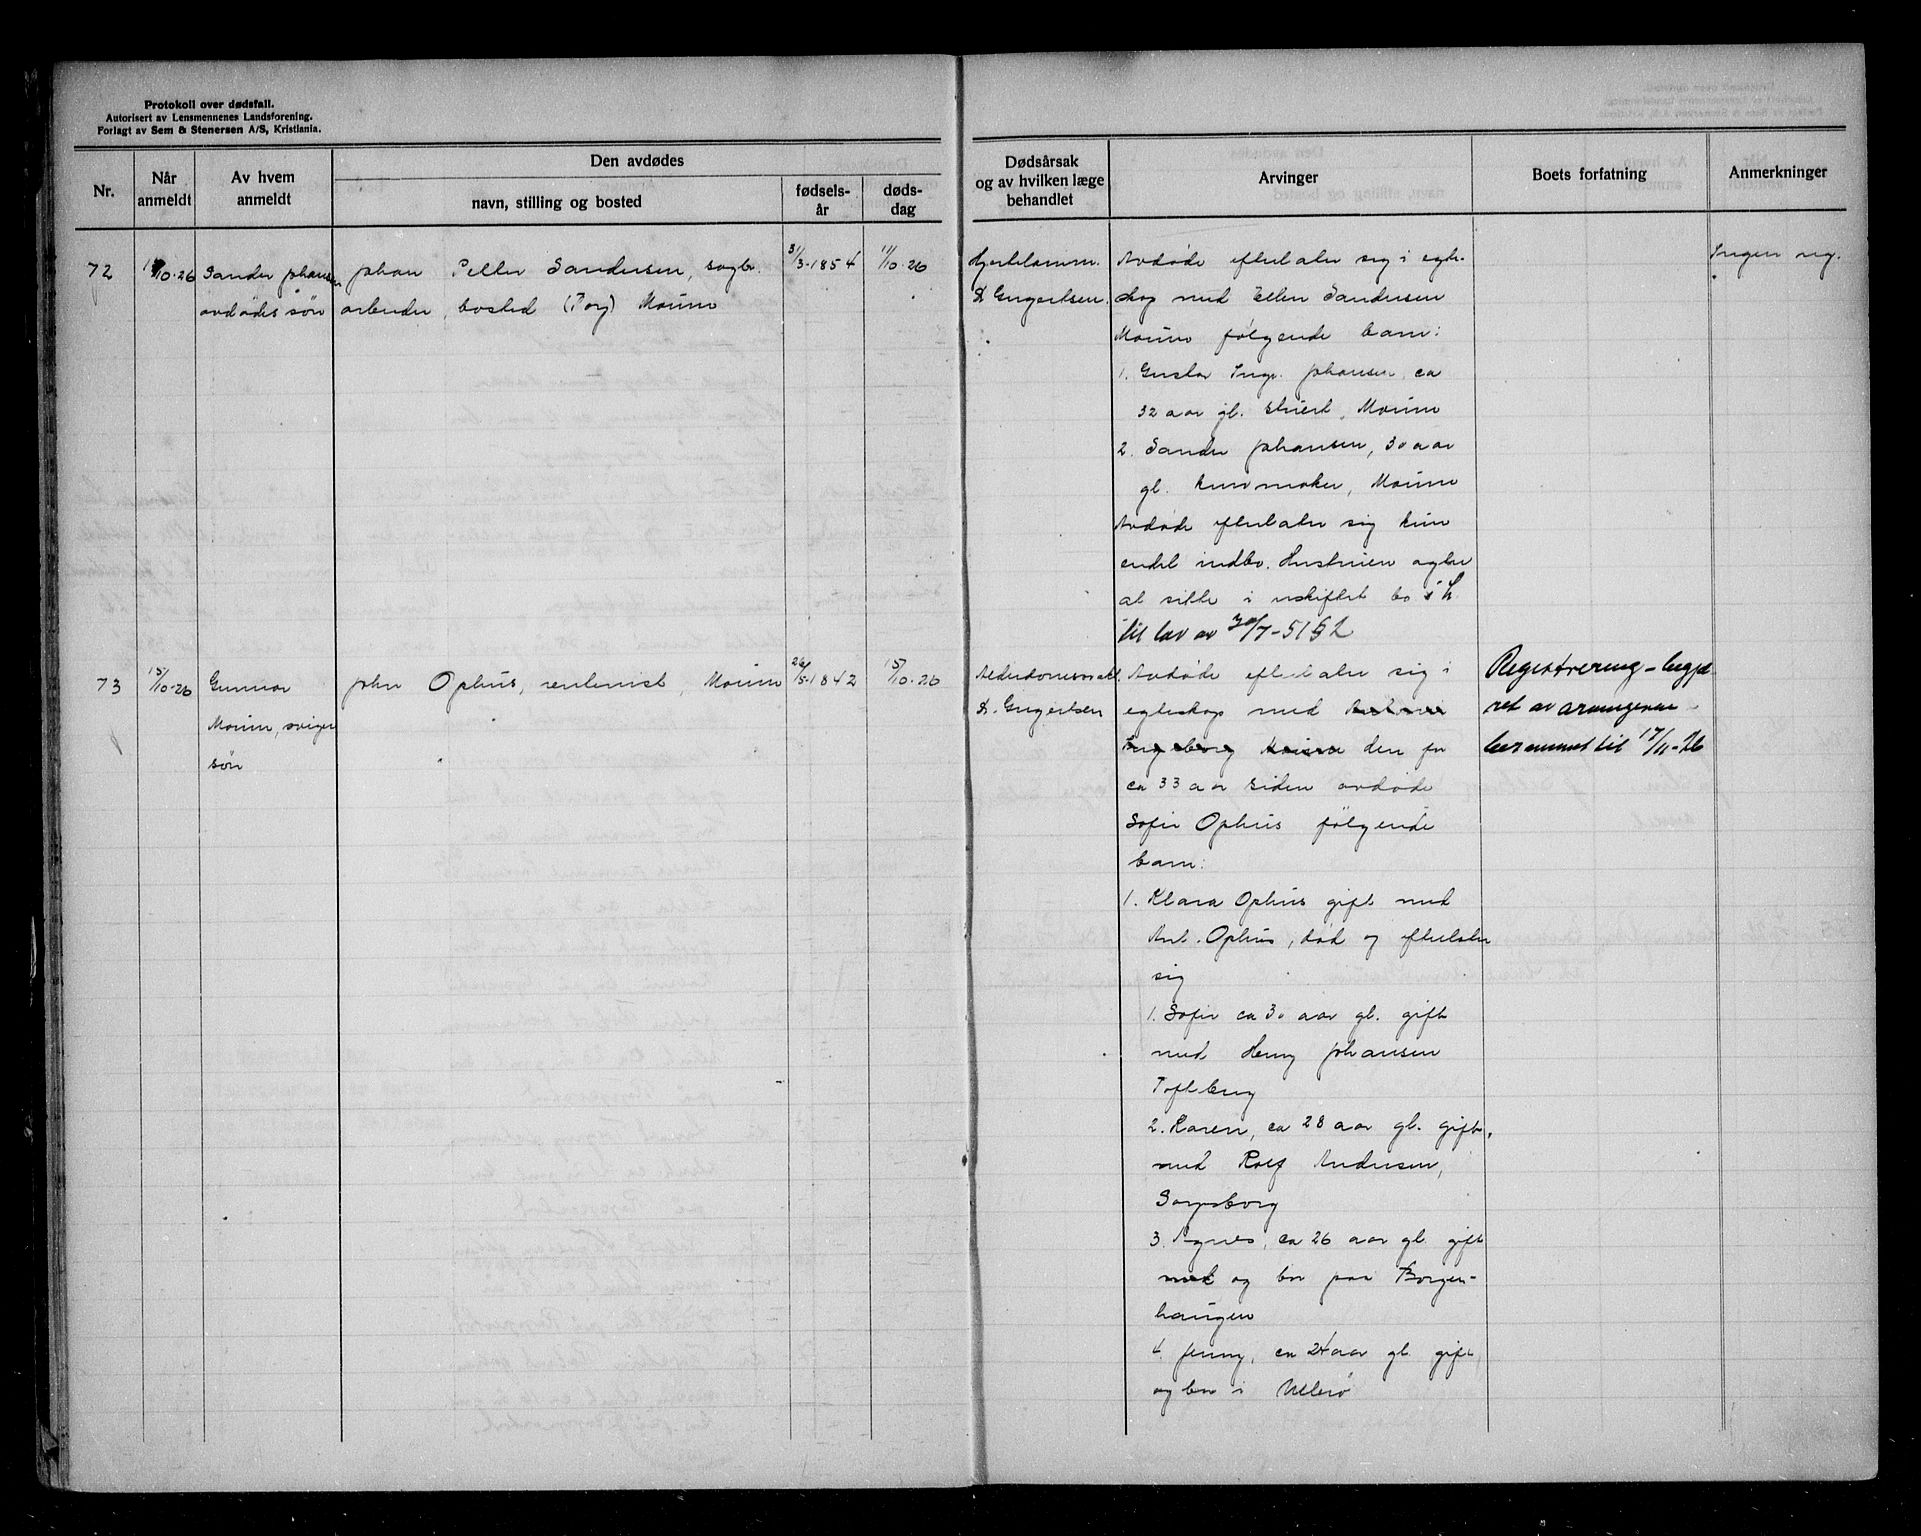 Protokoll over dødsfall.
Autorisert av Lensmennenes Landsforening.
Forlagt av Sem & Stenersen A/S, Kristiania.
Nr.
Når anmeldt
Av hvem anmeldt
Den avdødes
navn, stilling og bosted
fødsels-år
døds-dag
Dødsårsak og av hvilken læge behandlet
Arvinger
Boets forfatning
Anmerkninger
72
/10-26
Sander Johansen
avdødes søn
Johan Petter Sandersen, sagbr.
arbeider, bosted (Torg) Moum
31/3-1854
11/10-26
Hjertelamm.
D. Engertsen.
Avdøde efterlater sig i egte-
skap med Ellen Sandersen
Moum følgende barn:
1. Gustav Ing. Johansen, ca
32 aar gl. Moum
2. Sander Johansen, 30 aar
gl. Moum
Avdøde efterlater sig kun
endel indbo. Hustruen agter
at sitte i uskiftet bo i h.
til lov av 30/7-51 § 2
Ingen reg.
73
15/10-26
Gunnar
Moum, sviger
søn
John Ophus, rentenist, Moum
26/5-1842
15/10-26
Alderdomssvakh.
D. Engertsen
Avdøde efterlater sig i
egteskap med
Ingeborg den for
ca 33 aar siden avdøde
Sofie Ophus følgende
barn:
1. Klara Ophus gift med
Ant. Ophus, død og efterlater
sig
1. Sofie ca 30 aar gl. gift
med Henry Johansen
Tofteberg
2. Karen, ca 28 aar gl. gift
med Rolf Andersen,
Sarpsborg
3. Agnes, ca 26 aar gl. gift
med og bor paa Borgen-
haugen
4. Jenny, ca 24 aar gl. gift
og bor i Ullerø
Registrering - begjæ-
ret av arvingerne -
berammet til 17/11-26